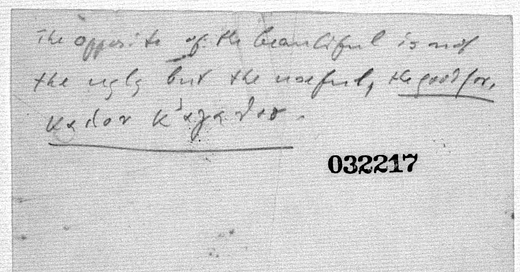 The opposite of the beautiful is not
the ugly but the useful, the good for.
καλον κ'αγαθον.
032217